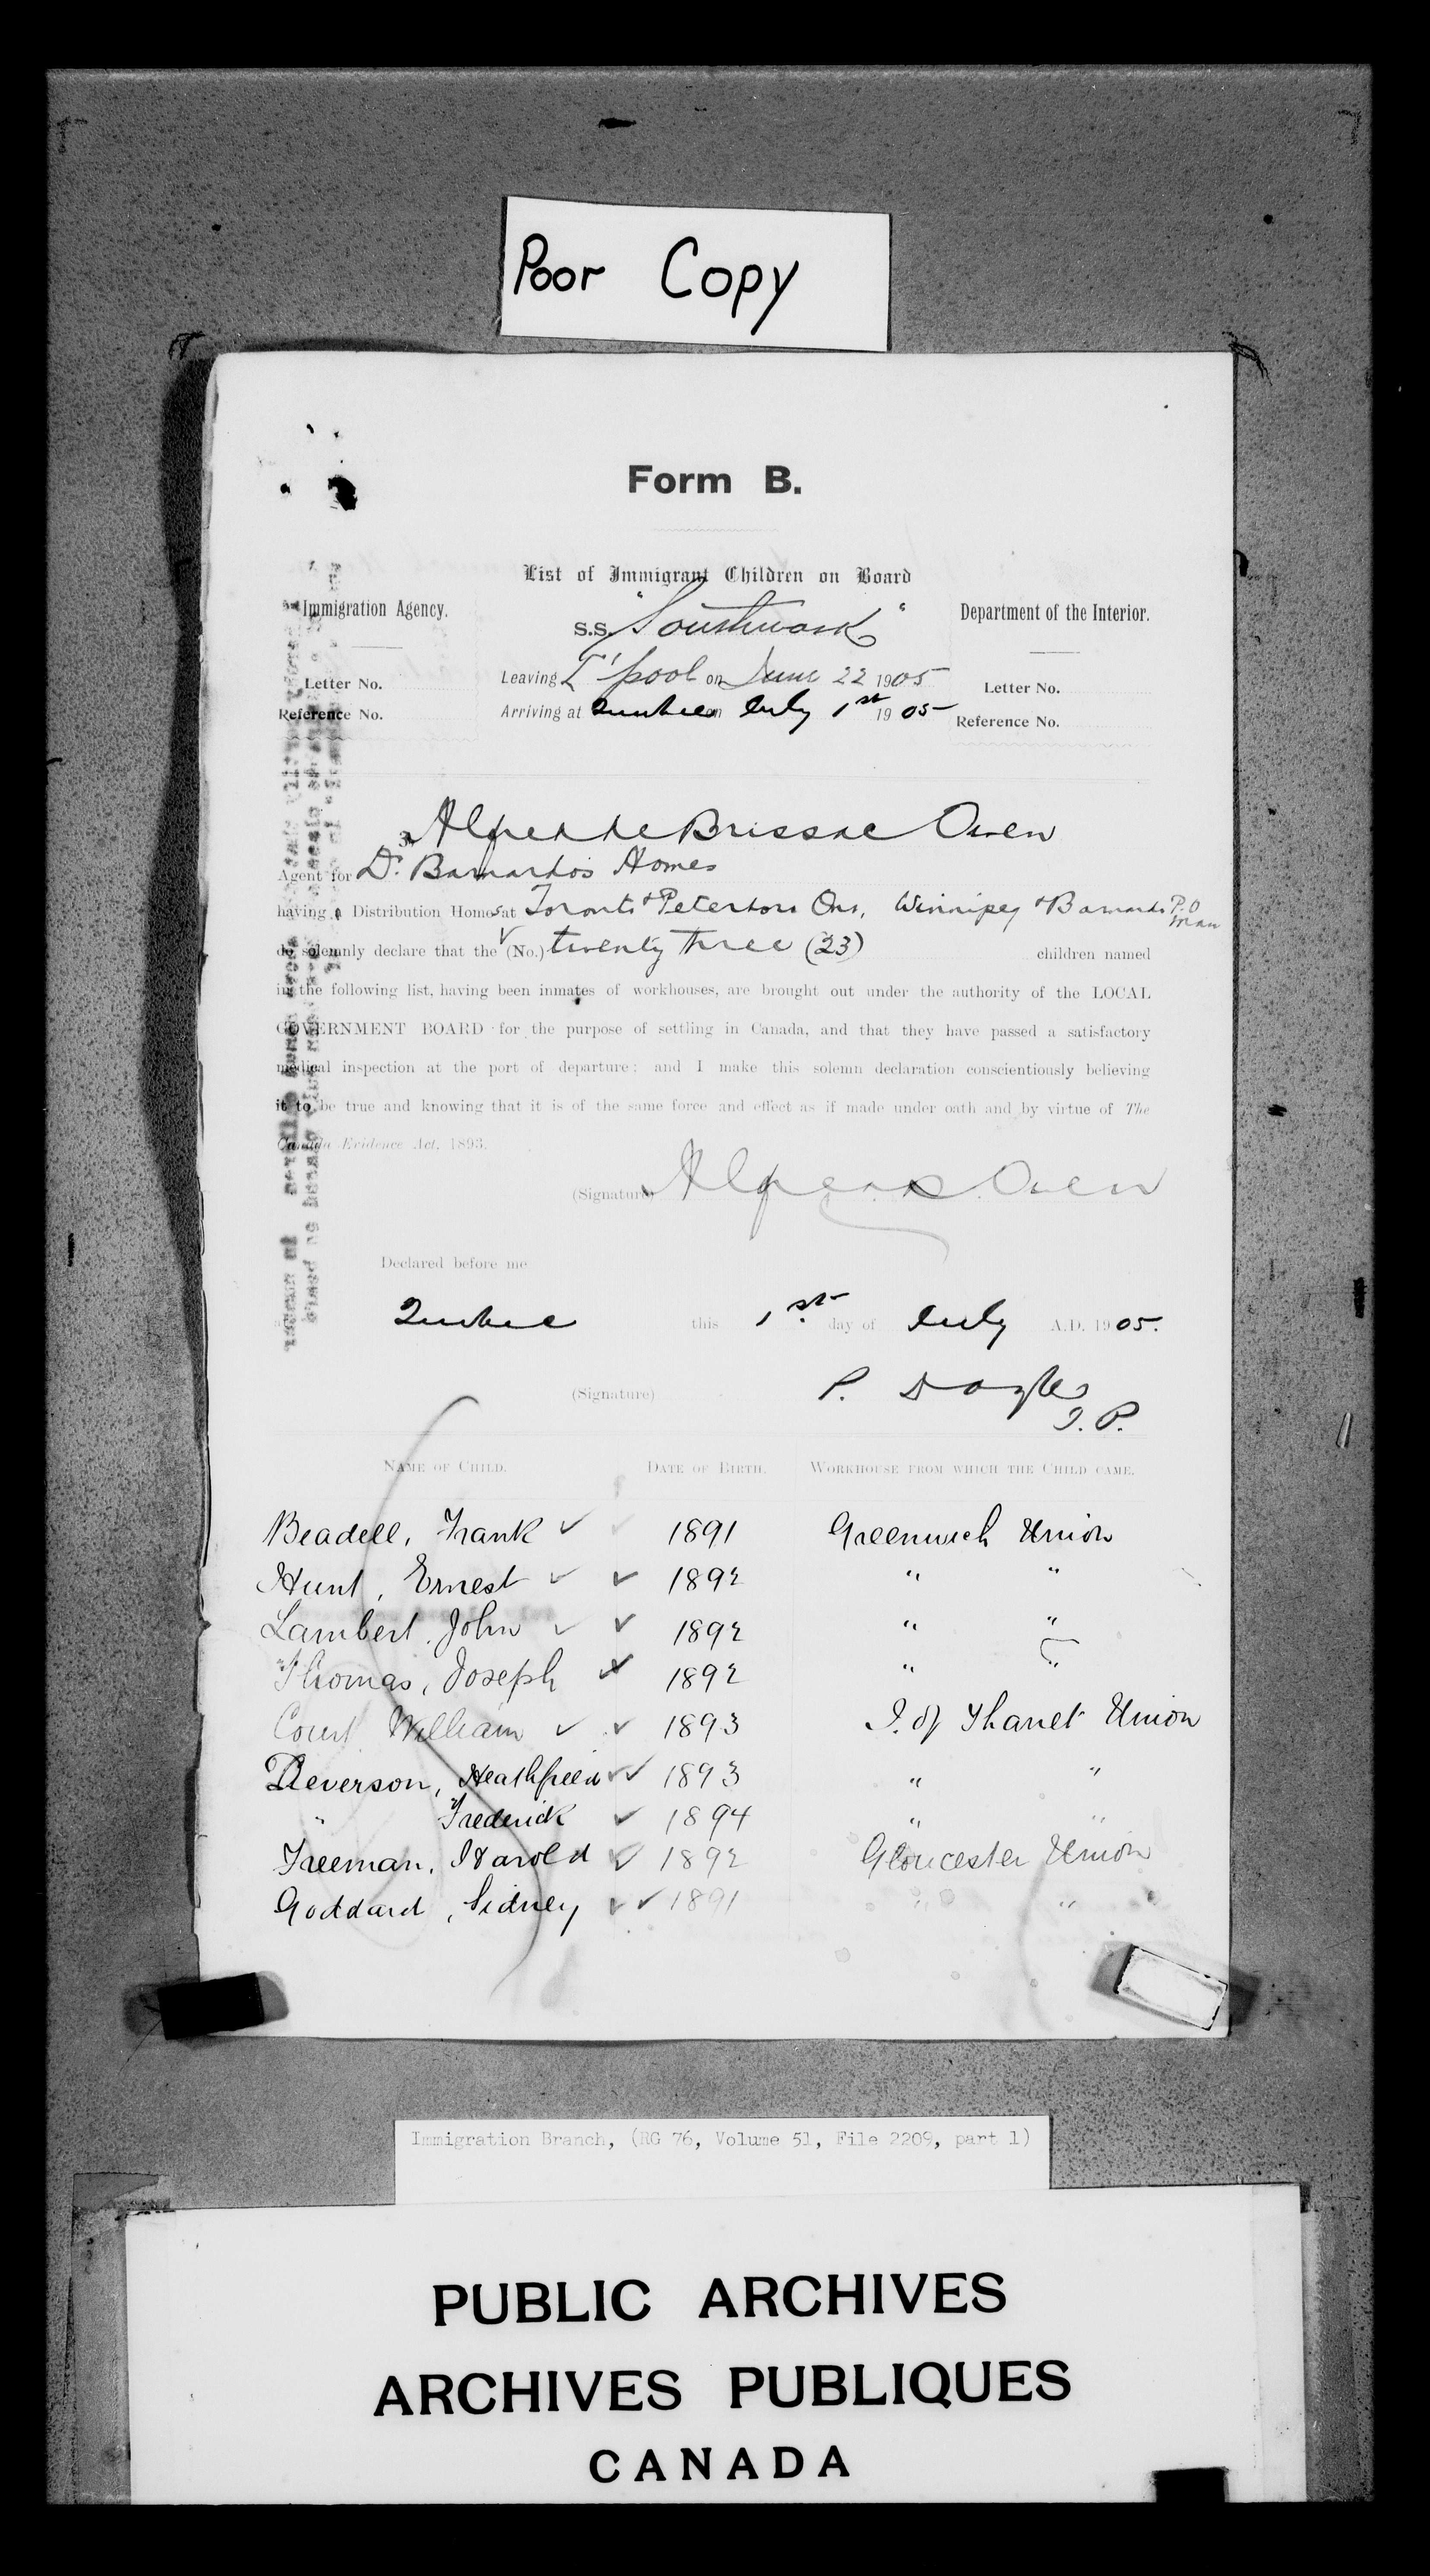 Poor Copy
Form B.
List of Immigrant Children on Board
Immigration Agency.
S.S. "Southwark"
Department of the Interior.
Letter No.
Leaving L'pool on June 22 1905
Letter No.
Reference No.
Arriving at Quebec on July 1st 1905
Reference No.
I, Alfred de Brissac Owen
Agent for Dr. Barnardo's Homes
having a Distribution Homes at Toronto & Peterboro Ont, Winnipeg & Barnardo P.O Man
do solemnly declare that the (No.) twenty three (23) children named
in the following list, having been inmates of workhouses, are brought out under the authority of the LOCAL
GOVERNMENT BOARD for the purpose of settling in Canada, and that they have passed a satisfactory
medical inspection at the port of departure; and I make this solemn declaration conscientiously believing
it to be true and knowing that it is of the same force and effect as if made under oath and by virtue of The
Canada Evidence Act, 1893.
(Signature) Alfred B. Owen
Declared before me
Quebec this 1st day of July A.D. 1905.
(Signature) P. Doyle
J.P.
NAME OF CHILD. DATE OF BIRTH. WORKHOUSE FROM WHICH THE CHILD CAME.
Beadell, Frank ✓ ✓ 1891 Greenwich Union
Hunt, Ernest ✓ ✓ 1892 " "
Lambert, John ✓ ✓ 1892 " "
Thomas, Joseph ✓ 1892 " "
Court William ✓ ✓ 1893 I. of Thanet Union
Deverson, Heathfield ✓✓ 1893 " "
" Frederick ✓ 1894 " "
Freeman, Harold ✓ 1892 Gloucester Union
Goddard, Sidney ✓ ✓ 1891 " "
Immigration Branch, (RG 76, Volume 51, File 2209, part 1)
PUBLIC ARCHIVES
ARCHIVES PUBLIQUES
CANADA